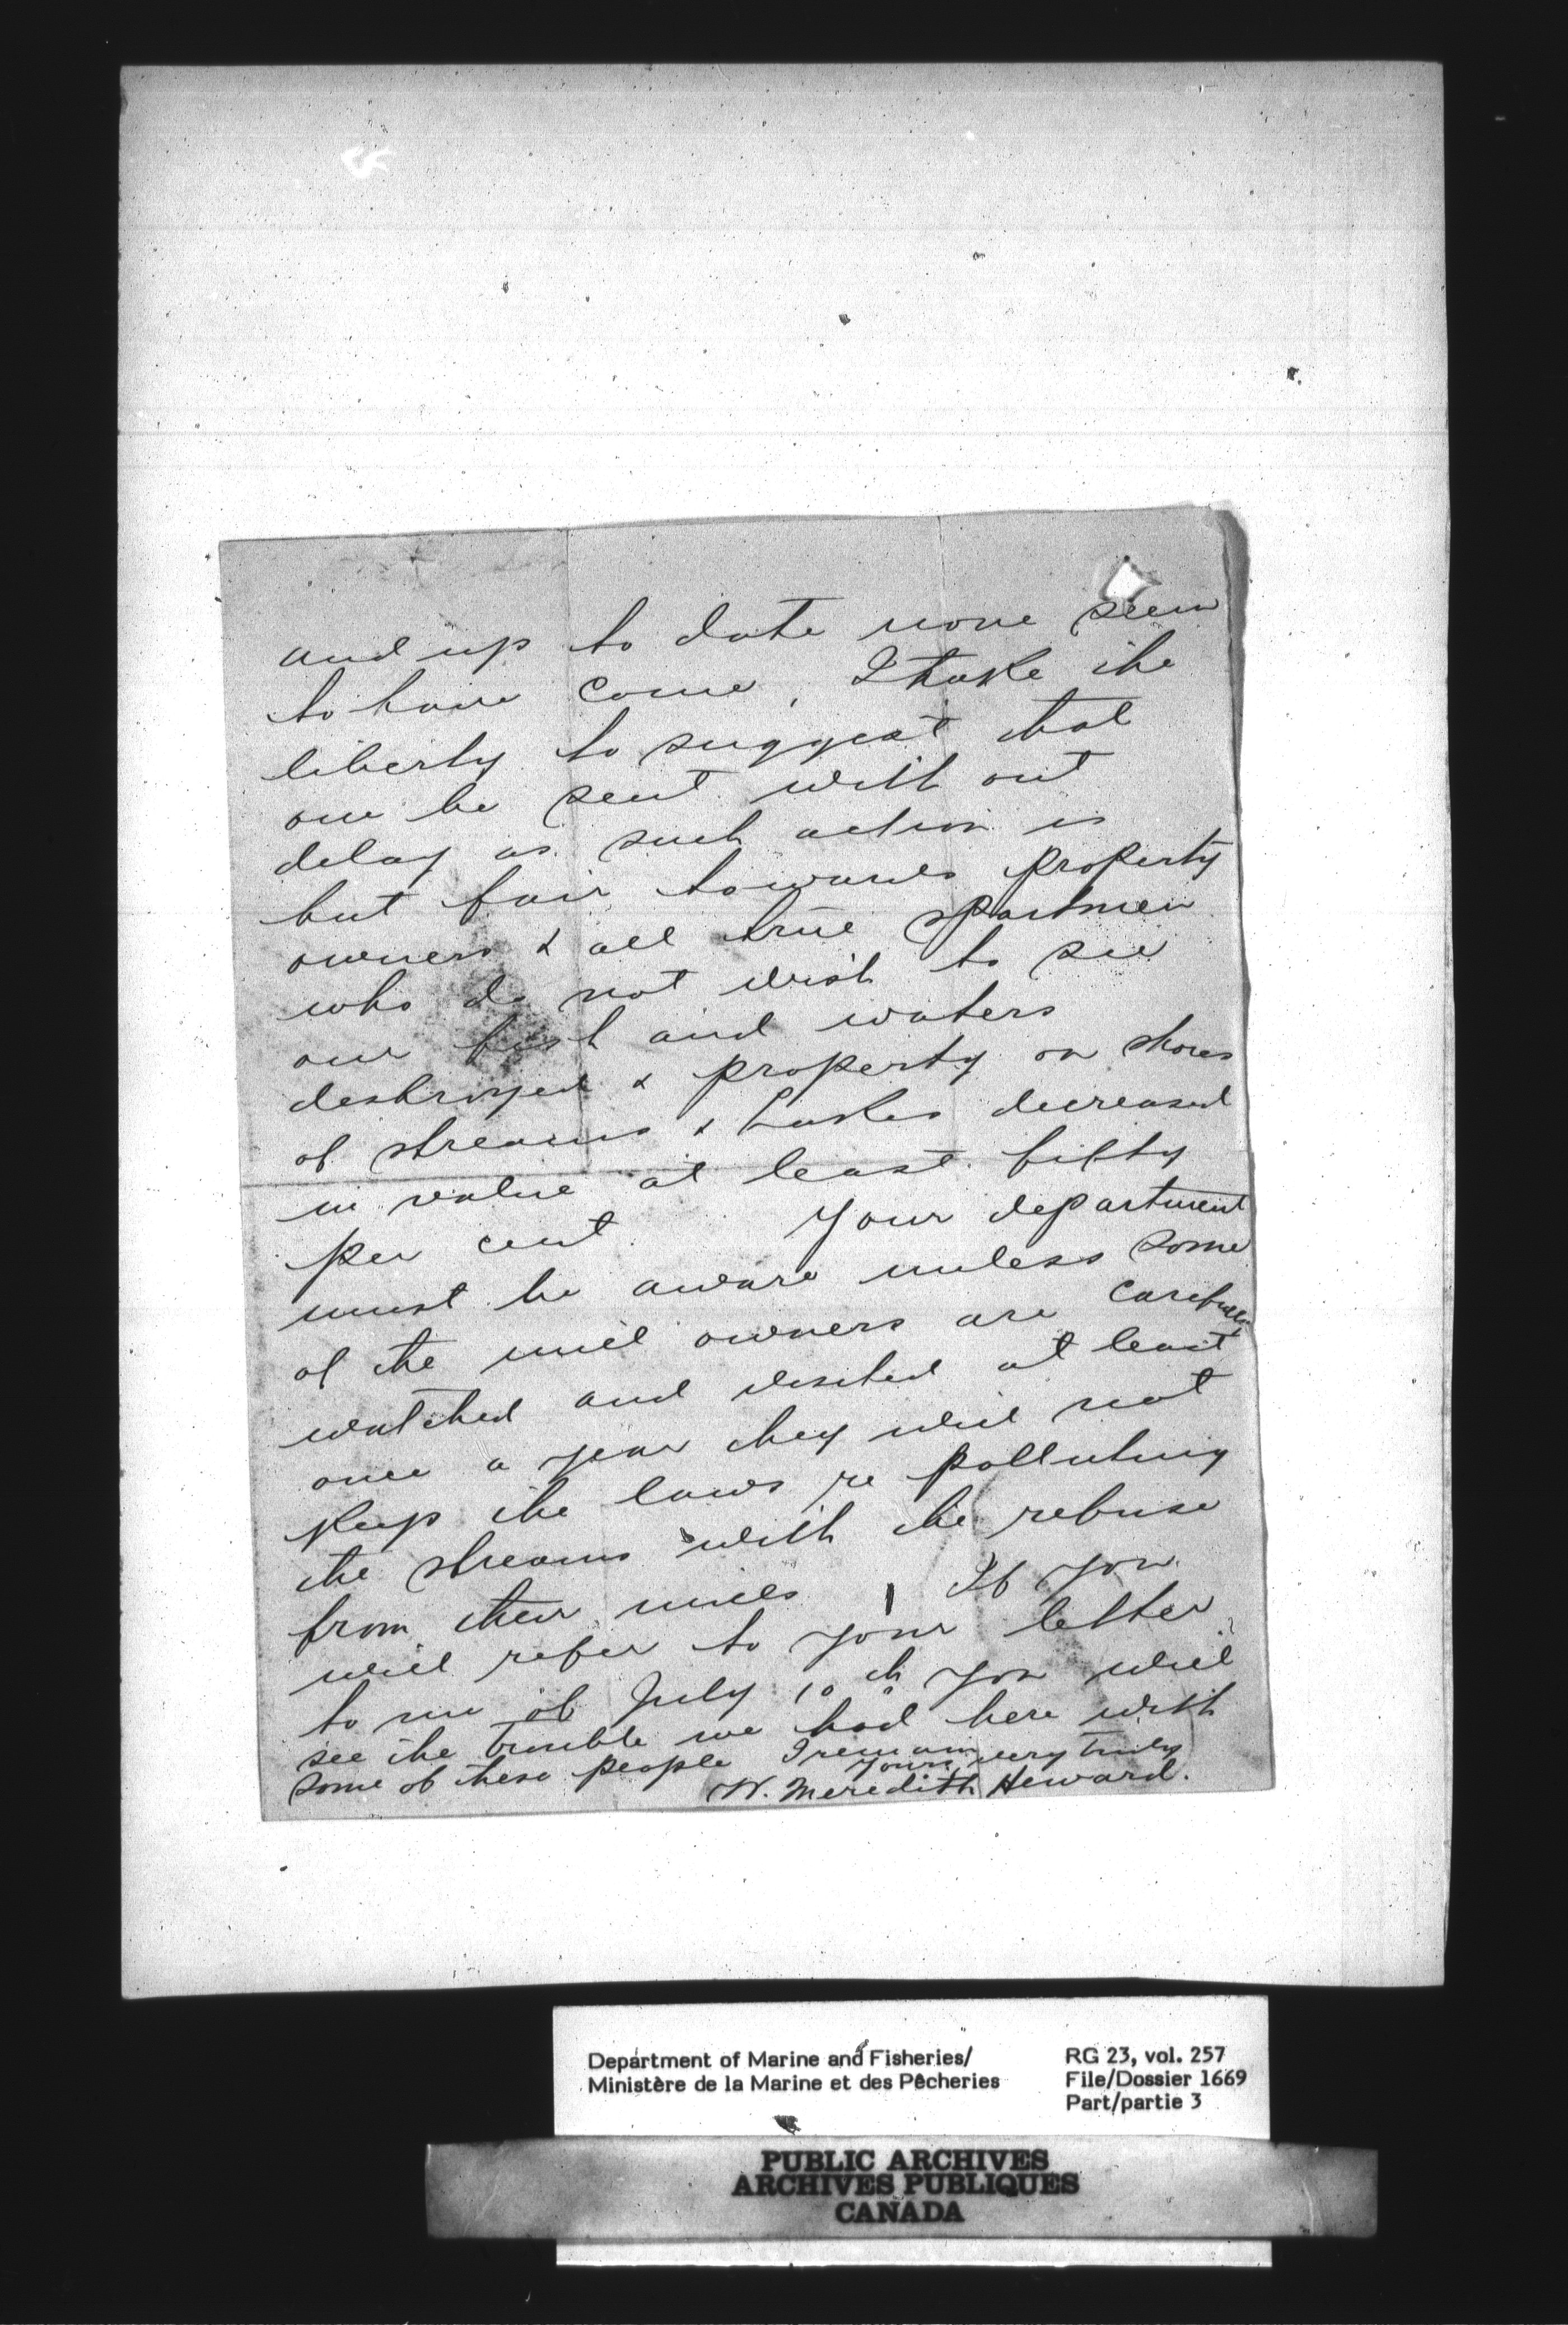 and up to date none seem
to have come, I take the
liberty to suggest that
one be sent with out
delay as such action is
but fair towards property
owners & all true sportmen
who do not wish to see
our fish and waters
destroyed & property on shores
of streams & Lakes decreased
in value at least fifty
per cent. Your department
must be aware unless some
of the mill owners are carefully
watched and visited at least
once a year they will not
keep the laws re polluting
the streams with the refuse
from their mills. If you
will refer to your letter
to me of July 10th you will
see the trouble we had here with
some of these people I remain
yours very truly
W. Meredith Heward.
Department of Marine and Fisheries/
Ministère de la Marine et des Pêcheries
RG 23, vol. 257
File/Dossier 1669
Part/partie 3
PUBLIC ARCHIVES
ARCHIVES PUBLIQUES
CANADA